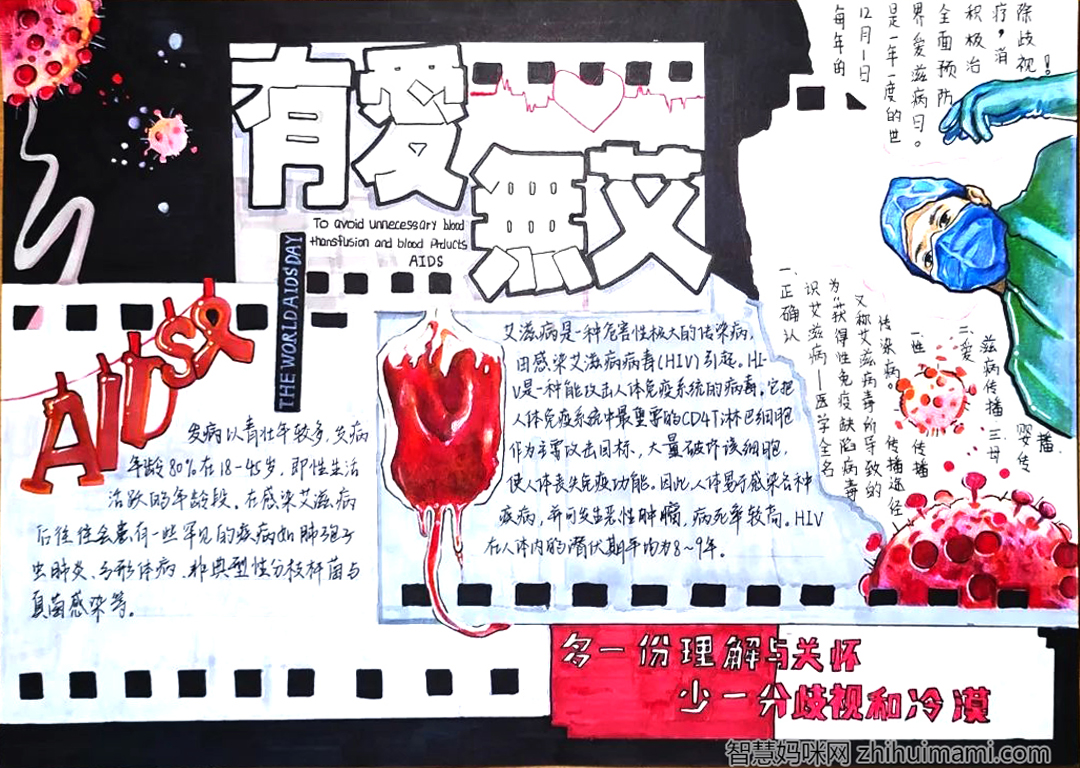 有爱
無艾
To avoid unnecessary blood
thansfusion and blood Prducts
AIDS
THE WORLD AIDS DAY
AIDS
每年的
12月1日
是一年一度的世
界爱滋病日。
全面预防
积极治
疗,消
除歧视!
一、正确认
识艾滋病—医学全名
为"获得性免疫缺陷病毒
又称艾滋病毒所导致的
传染病。
传播途径
一性
传播
二爱
滋病传播.三.母
婴传
播.
艾滋病是一种危害性极大的传染病,
因感染艾滋病病毒(HIV)引起。HI-
V是一种能攻击人体免疫系统的病毒。它把
人体免疫系统中最重要的CD4T淋巴细胞
作为主要攻击目标,大量破坏该细胞,
使人体丧失免疫功能。因此人体易于感染各种
疾病,并可发生恶性肿瘤,病死率较高。HIV
在人体内的潜伏期平均为8~9年。
发病以青壮年较多,发病
年龄80%在18-45岁,即性生活
活跃的年龄段。在感染艾滋病
后往往会患有一些罕见的疾病如肺孢子
虫肺炎、弓形体病、非典型性分枝杆菌与
真菌感染等。
多一份理解与关怀
少一分歧视和冷漠
智慧妈咪网 zhihuimami.com